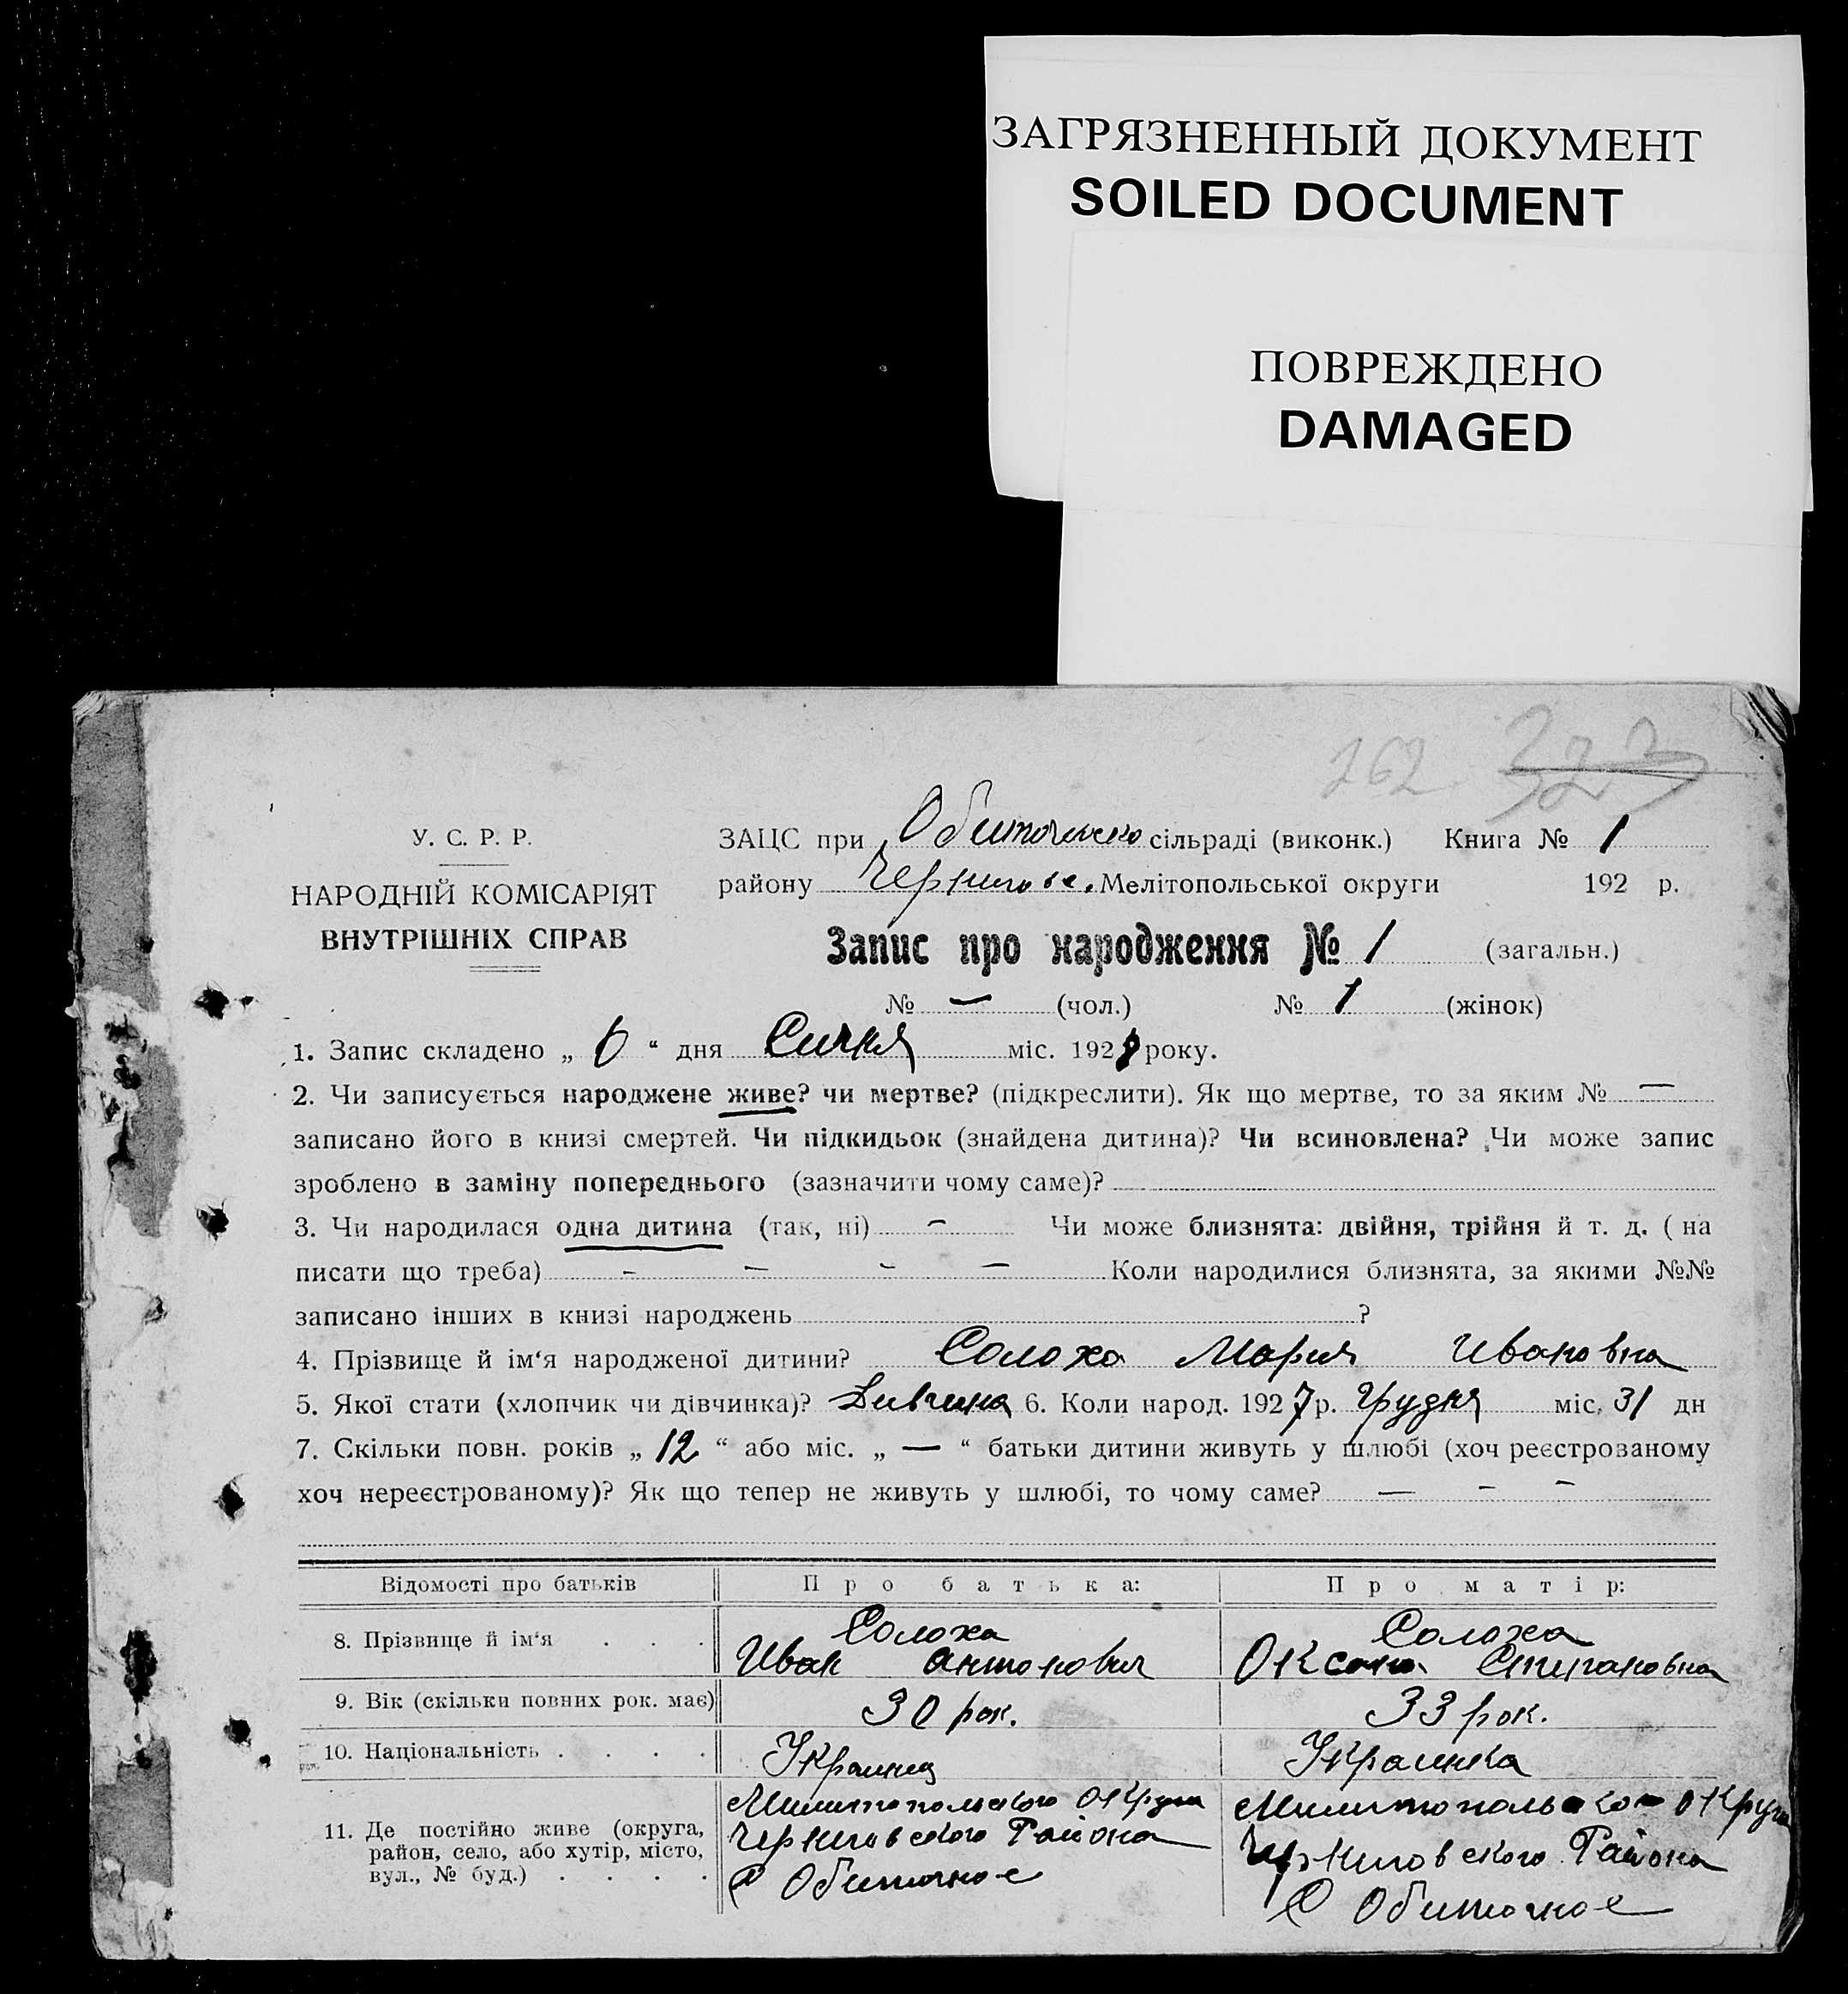 ЗАГРЯЗНЕННЫЙ ДОКУМЕНТ
SOILED DOCUMENT
ПОВРЕЖДЕНО
DAMAGED
262 323
У. С. Р. Р.
НАРОДНІЙ КОМІСАРІЯТ
ВНУТРІШНІХ СПРАВ
ЗАЦС при Обиточнско сільраді (виконк.) Книга № 1
району Чернигове. Мелітопольської округи 192 р.
Запис про народження № 1 (загальн.)
№ — (чол.) № 1 (жінок)
1. Запис складено „ 6 “ дня Сичня міс. 1928 року.
2. Чи записується народжене живе? чи мертве? (підкреслити). Як що мертве, то за яким № —
записано його в книзі смертей. Чи підкидьок (знайдена дитина)? Чи всиновлена? Чи може запис
зроблено в заміну попереднього (зазначити чому саме)?
3. Чи народилася одна дитина (так, ні) — Чи може близнята: двійня, трійня й т. д. ( на
писати що треба) — — — — Коли народилися близнята, за якими №№
записано інших в книзі народжень ?
4. Прізвище й ім‘я народженої дитини? Солоха Мария Ивановна
5. Якої стати (хлопчик чи дівчинка)? Дивчина 6. Коли народ. 1927 р. Грудня міс. 31 дн
7. Скільки повн. років „ 12 “ або міс. „ — “ батьки дитини живуть у шлюбі (хоч реєстрованому
хоч нереєстрованому)? Як що тепер не живуть у шлюбі, то чому саме? — — —
Відомості про батьків Про батька: Про матір:
8. Прізвище й ім‘я . . . Солоха Солоха
Иван Антонович Оксана Степановна
9. Вік (скільки повних рок. має) 30 рок. 33 рок.
10. Національність . . . . Украинец Украинка
11. Де постійно живе (округа, район, село, або хутір, місто, вул., № буд.) . . . .
Милитопольского Округа Милитопольского Округа
Черниговского Района Черниговского Района
С Обиточное С Обиточное